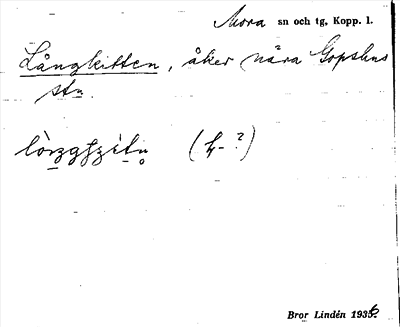 Mora sn och tg, Kopp. l.
Långkitten, åker nära Gopshus
stn.
Bror Lindén 1936.